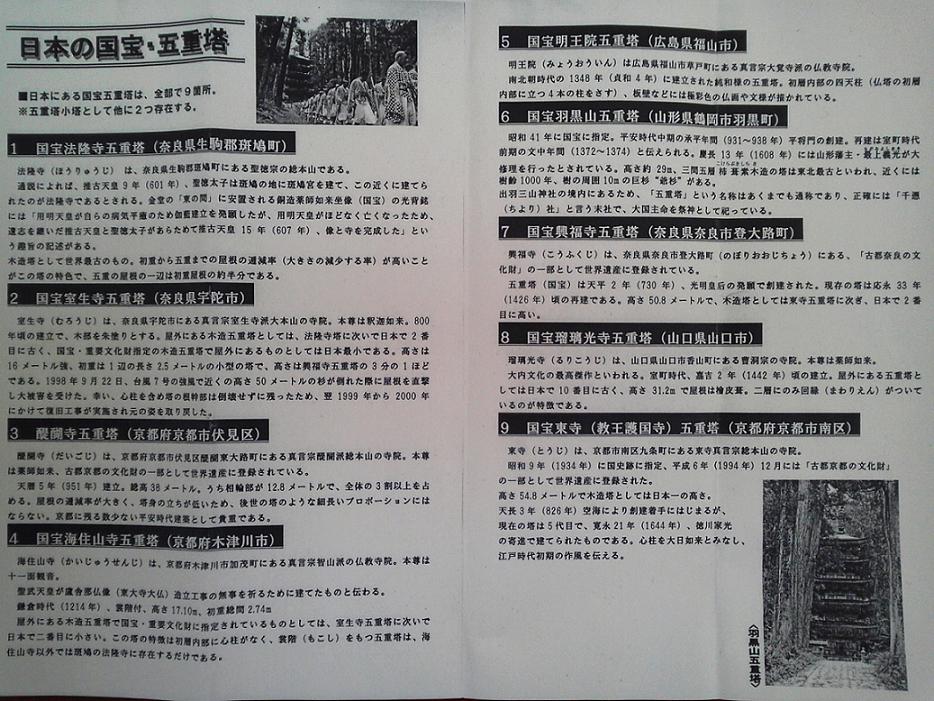 日本の国宝・五重塔
■日本にある国宝五重塔は、全部で9箇所。
※五重塔小塔として他に2つ存在する。
1 国宝法隆寺五重塔(奈良県生駒郡斑鳩町)
法隆寺(ほうりゅうじ)は、奈良県生駒郡斑鳩町にある聖徳宗の総本山である。
通説によれば、推古天皇9年(601年)、聖徳太子は斑鳩の地に斑鳩宮を建て、この近くに建てら
れたのが法隆寺であるとされる。金堂の「東の間」に安置される銅造薬師如来坐像(国宝)の光背銘
には「用明天皇が自らの病気平癒のため伽藍建立を発願したが、用明天皇がほどなく亡くなったため、
遺志を継いだ推古天皇と聖徳太子があらためて推古天皇15年(607年)、像と寺を完成した」とい
う趣旨の記述がある。
木造塔として世界最古のもの。初重から五重までの屋根の逓減率(大きさの減少する率)が高いこと
がこの塔の特色で、五重の屋根の一辺は初重屋根の約半分である。
2 国宝室生寺五重塔(奈良県宇陀市)
室生寺(むろうじ)は、奈良県宇陀市にある真言宗室生寺派大本山の寺院。本尊は釈迦如来。800
年頃の建立で、木部を朱塗りとする。屋外にある木造五重塔としては、法隆寺塔に次いで日本で2番
目に古く、国宝・重要文化財指定の木造五重塔で屋外にあるものとしては日本最小である。高さは
16メートル強、初重は1辺の長さ2.5メートルの小型の塔で、高さは興福寺五重塔の3分の1ほど
である。1998年9月22日、台風7号の強風で近くの高さ50メートルの杉が倒れた際に屋根を直撃
し大被害を受けた。幸い、心柱を含め塔の根幹部は倒壊せずに残ったため、翌1999年から2000年
にかけて復旧工事が実施され元の姿を取り戻した。
3 醍醐寺五重塔(京都府京都市伏見区)
醍醐寺(だいごじ)は、京都府京都市伏見区醍醐東大路町にある真言宗醍醐派総本山の寺院。本尊
は薬師如来、古都京都の文化財の一部として世界遺産に登録されている。
天暦5年(951年)建立。総高38メートル。うち相輪部が12.8メートルで、全体の3割以上を占
める。屋根の逓減率が大きく、塔身の立ちが低いため、後世の塔のような細長いプロポーションには
ならない。京都に残る数少ない平安時代建築として貴重である。
4 国宝海住山寺五重塔(京都府木津川市)
海住山寺(かいじゅうせんじ)は、京都府木津川市加茂町にある真言宗智山派の仏教寺院。本尊は
十一面観音。
聖武天皇が盧舎那仏像(東大寺大仏)造立工事の無事を祈るために建てたものと伝わる。
鎌倉時代(1214年)、裳階付、高さ17.10m、初重総間2.74m
屋外にある木造五重塔で国宝・重要文化財に指定されているものとしては、室生寺五重塔に次いで
日本で二番目に小さい。この塔の特徴は初層内部に心柱がなく、裳階(もこし)をもつ五重塔は、海
住山寺以外では斑鳩の法隆寺に存在するだけである。
5 国宝明王院五重塔(広島県福山市)
明王院(みょうおういん)は広島県福山市草戸町にある真言宗大覚寺派の仏教寺院。
南北朝時代の1348年(貞和4年)に建立された純和様の五重塔。初層内部の四天柱(仏塔の初層
内部に立つ4本の柱をさす)、板壁などには極彩色の仏画や文様が描かれている。
6 国宝羽黒山五重塔(山形県鶴岡市羽黒町)
昭和41年に国宝に指定。平安時代中期の承平年間(931~938年)平将門の創建。再建は室町時代
前期の文中年間(1372~1374)と伝えられる。慶長13年(1608年)には山形藩主・最上義光が大
修理を行ったとされている。高さ約29m、三間五層柿葺素木造の塔は東北最古といわれ、近くには
樹齢1000年、樹の周囲10mの巨杉“爺杉”がある。
出羽三山神社の境内にあるため、「五重塔」という名称はあくまでも通称であり、正確には「千憑
(ちより)社」と言う末社で、大国主命を祭神として祀っている。
7 国宝興福寺五重塔(奈良県奈良市登大路町)
興福寺(こうふくじ)は、奈良県奈良市登大路町(のぼりおおじちょう)にある、「古都奈良の文
化財」の一部として世界遺産に登録されている。
五重塔(国宝)は天平2年(730年)、光明皇后の発願で創建された。現存の塔は応永33年
(1426年)頃の再建である。高さ50.8メートルで、木造塔としては東寺五重塔に次ぎ、日本で2番
目に高い。
8 国宝瑠璃光寺五重塔(山口県山口市)
瑠璃光寺(るりこうじ)は、山口県山口市香山町にある曹洞宗の寺院。本尊は薬師如来。
大内文化の最高傑作といわれる。室町時代、嘉吉2年(1442年)頃の建立。屋外にある五重塔と
しては日本で10番目に古く、高さ31.2mで屋根は檜皮葺。二層にのみ回縁(まわりえん)がついて
いるのが特徴である。
9 国宝東寺(教王護国寺)五重塔(京都府京都市南区)
東寺(とうじ)は、京都市南区九条町にある東寺真言宗総本山の寺院。
昭和9年(1934年)に国史跡に指定、平成6年(1994年)12月には「古都京都の文化財」
の一部として世界遺産に登録された。
高さ54.8メートルで木造塔としては日本一の高さ。
天長3年(826年)空海により創建着手にはじまるが、
現在の塔は5代目で、寛永21年(1644年)、徳川家光
の寄進で建てられたものである。心柱を大日如来とみなし、
江戸時代初期の作風を伝える。
〈羽黒山五重塔〉